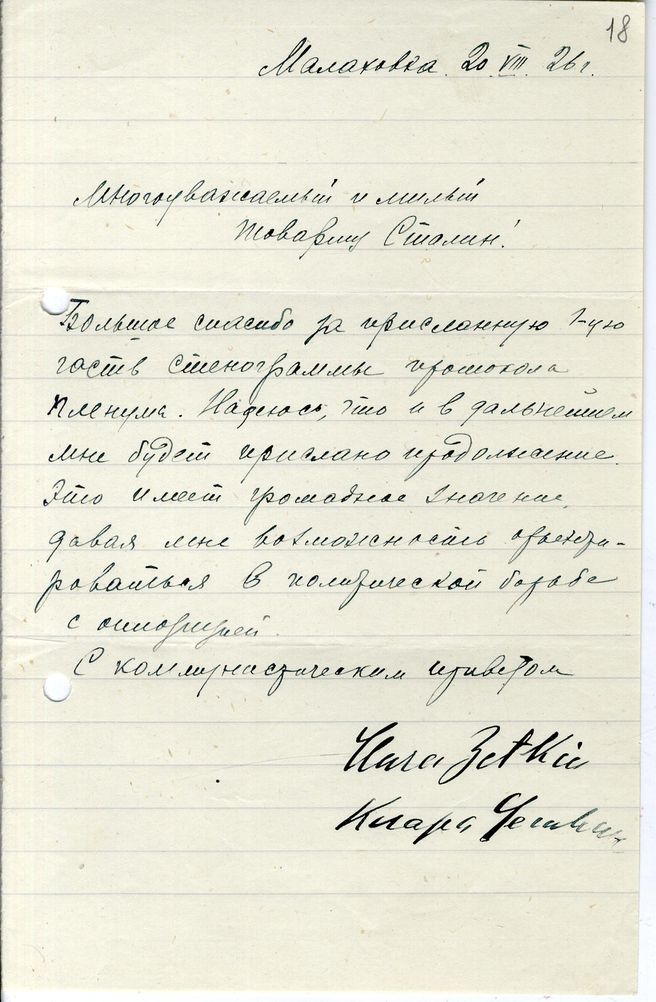 18
Малаховка 20.VIII.26 г.
Многоуважаемый и милый
товарищ Сталин!
Большое спасибо за присланную 1-ую
часть стенограммы протокола
пленума. Надеюсь, что и в дальнейшем
мне будет прислано продолжение.
Это имеет громадное значение,
давая мне возможность ориенти-
роваться в политической борьбе
с оппозицией.
С коммунистическим приветом
Clara Zetkin
Клара Цеткин